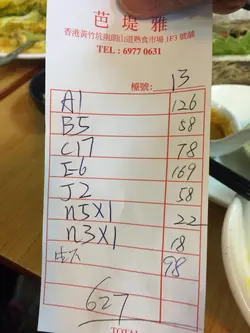 芭堤雅
香港黃竹坑南朗山道熟食市場 1F3 號舖
TEL : 6977 0631
檯號: 13
A1 126
B5 58
C17 78
E6 169
J2 58
n5X1 22
n3X1 18
98
627
TOTAL